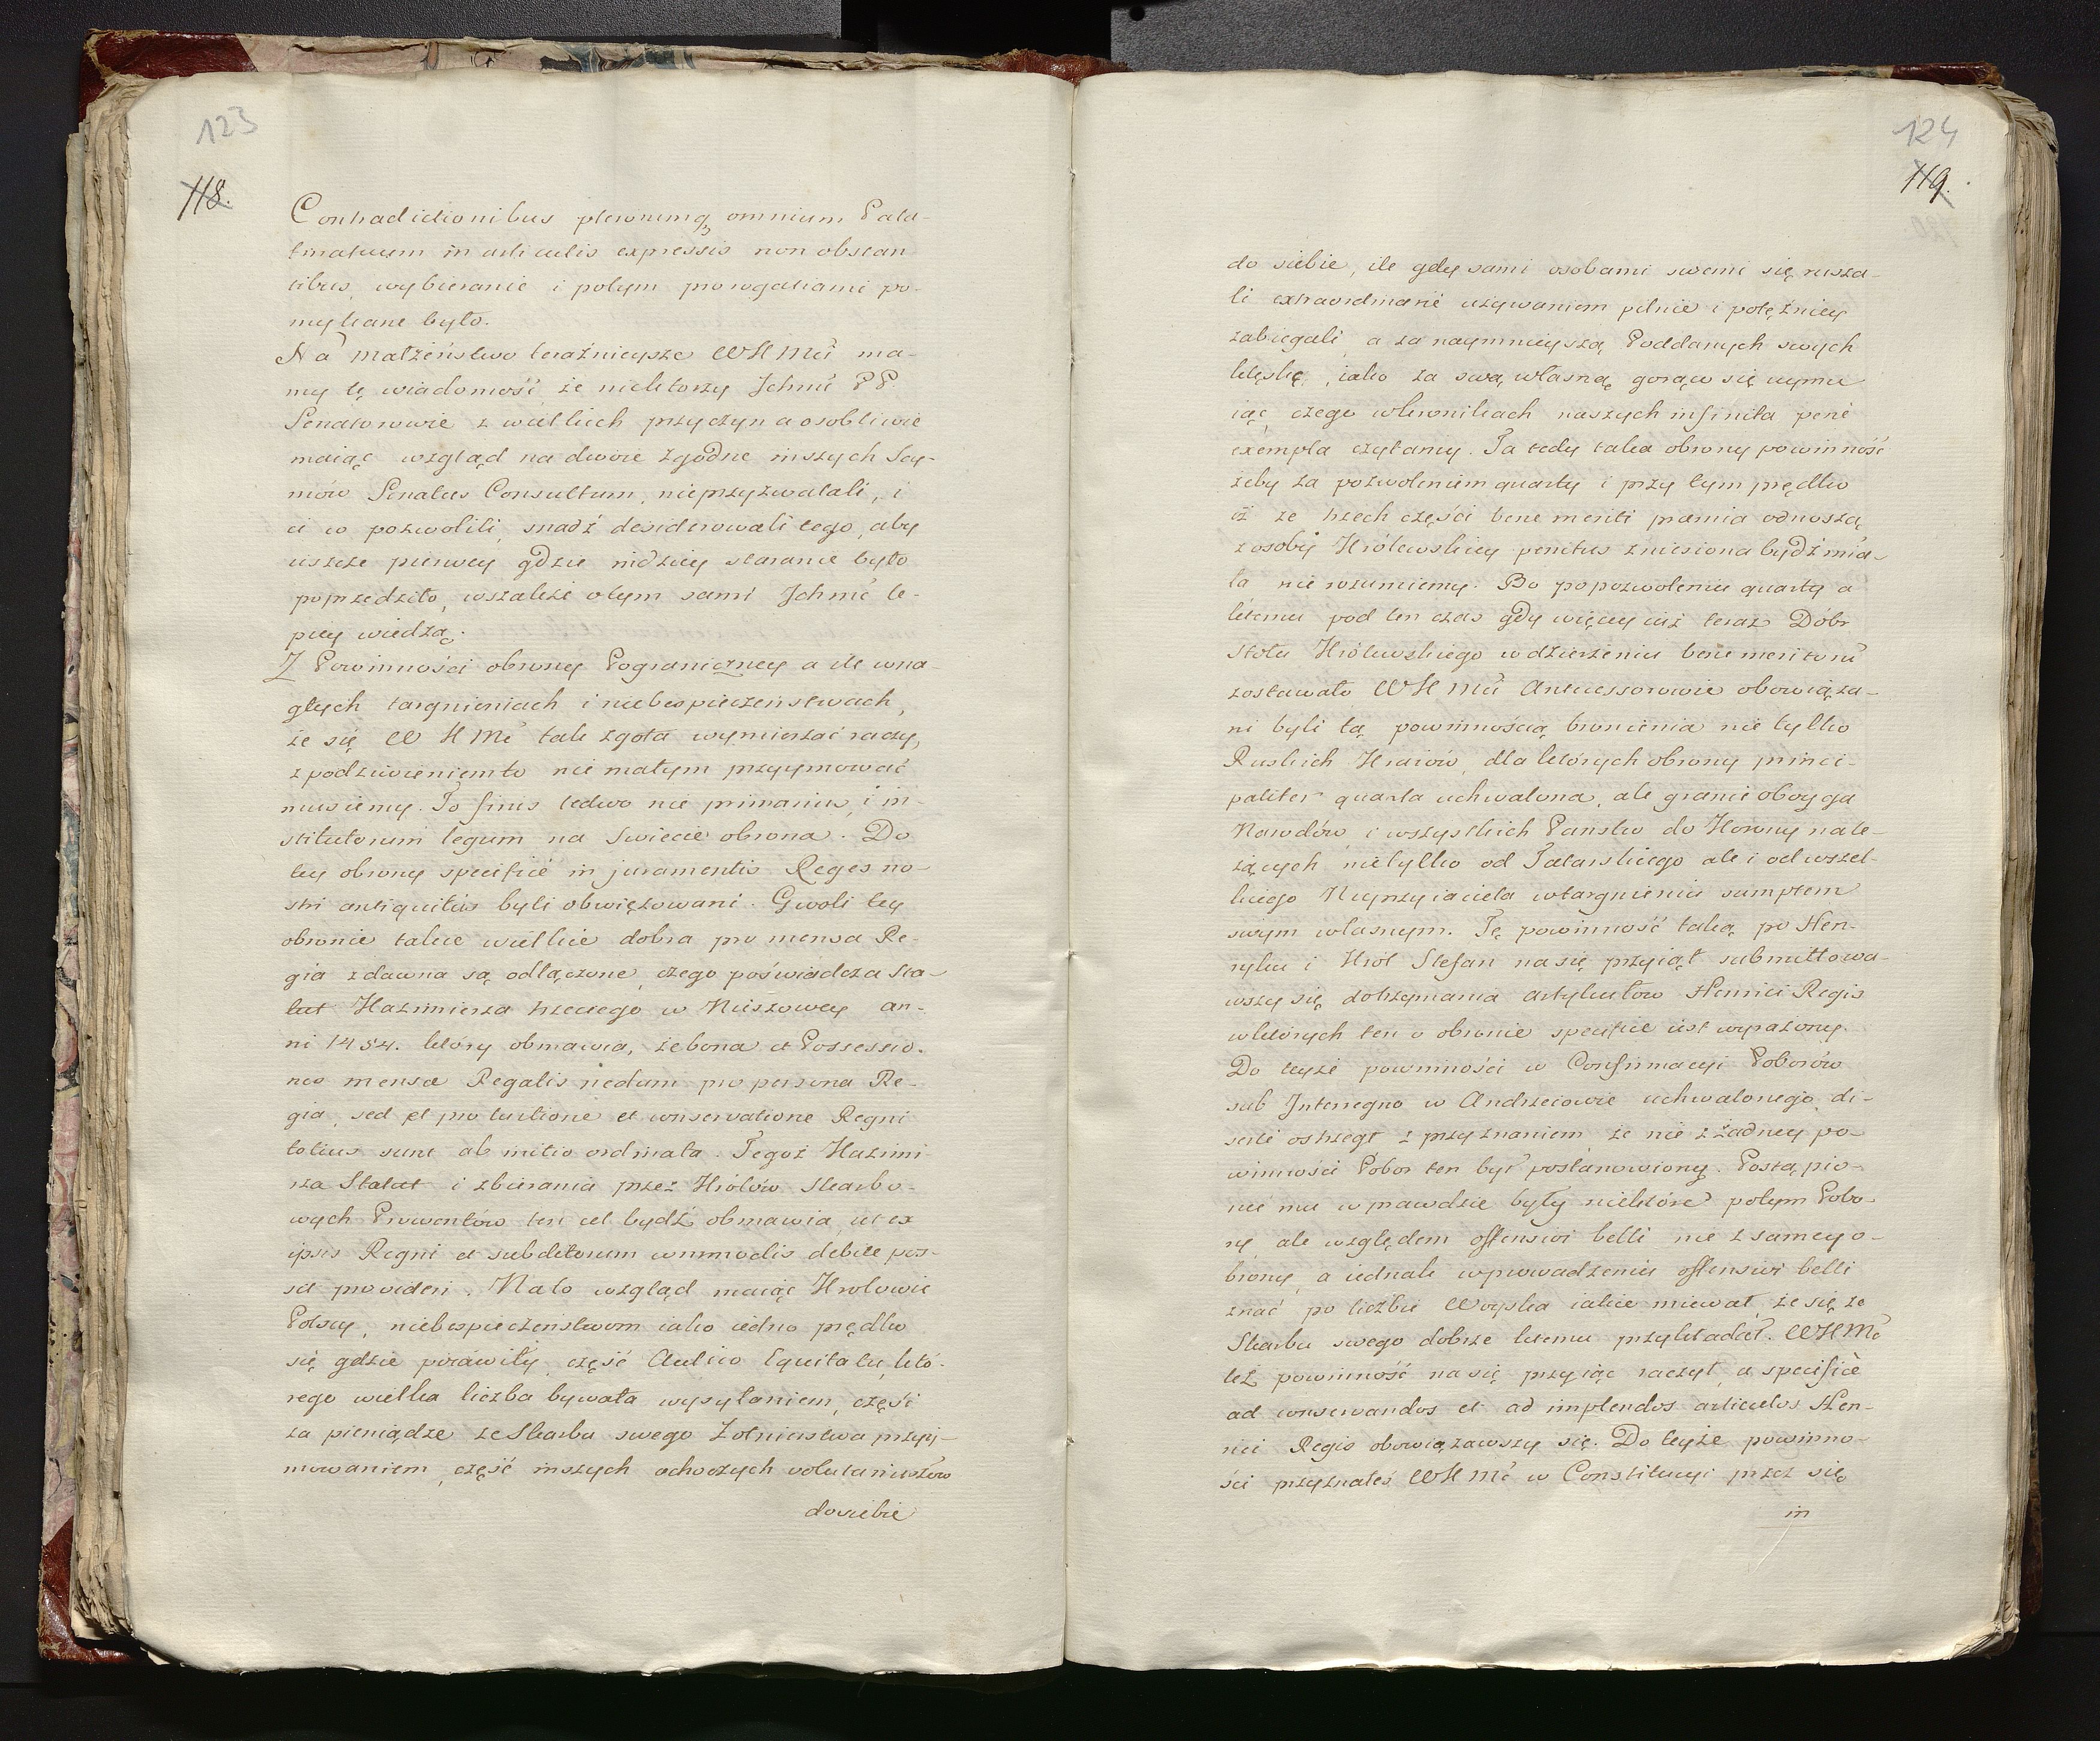 123
118.
Contradictionibus plerorumq omnium Pala-
tinatuum in articulis expressis non obstan
tibus, wybieranie i potym prorogatiami po-
mykane było.
Na małżeństwo teraźnieysze WKMci ma-
my tę wiadomość, że niektorzy Jchmć PP.
Senatorowie z wielkich przyczyn a osobliwie
maiąc wzgląd na dwoie zgodne inszych Sey-
mów Senatus Consultum, nieprzyzwalali, i
ci co pozwolili, snadź desiderowali tego, aby
ieszcze pierwey gdzie indziey staranie było
poprzedziło, wszakże otym sami Jchmć le-
piey wiedzą.
Z Powinności obrony Pograniczney a ile wna-
głych targnieniach i niebespieczeństwach,
że się WKMć tak zgoła wymierzać raczy,
z podziwieniem to nie małym przyymować
musiemy. To finis ledwo nie primarius, i in-
stitutorum legum na świecie obrona. Do
tey obrony specificè in juramentis Reges no-
stri antiquitùs byli obwięzowani. Gwoli tey
obronie takie wielkie dobra pro mensa Re-
gia zdawna są odłączone, czego poświadcza Sta-
tut Kazimierza trzeciego w Nieszowey an-
ni 1454. ktory obmawia, że bona et Possessio-
nes mensæ Regalis nedum pro persona Re-
gia, sed et pro tuitione et conservatione Regni
totius sunt ab initio ordinata. Tegoż Kazimi
rza Statut i zbierania przez Królów Skarbo-
wych Prowentów ten cel bydź obmawia, ut ex
ipsis Regni et subditorum commodis debite pos-
sit provideri. Na to wzgląd maiąc Krolowie
Polscy, niebespieczenstwom iako iedno prędko
się gdzie poiawiły, część Aulico Equitatu, któ-
rego wielka liczba bywała wysyłaniem, część
za pieniądze ze Skarbu swego Zołnierstwa przyy-
mowaniem, część inszych ochoczych voluntariuszów
do siebie
124
119.
do siebie, ile gdy sami osobami swemi się rusza-
li extraordinariè używaniem pilnie i potężniey
zabiegali, a za naymnieyszą Poddanych swych
klęskę, iako za swą własną gorąco się uymu
iąc, czego wkronikach naszych infinita penè
exempla czytamy. Ta tedy taka obrony powinność
żeby za pozwoleniem quarty i przy tym prędko
iż ze trzech części bene meriti præmia odnoszą
z osoby Królewskiey penitus zniesiona bydź mia-
ła nie rozumiemy. Bo po pozwoleniu quarty a
ktemu pod ten czas gdy więcey niż teraz Dóbr
Stołu Królewskiego w dzierzeniu bene meritorũ
zostawało WKMci Antecessorowie obowiąza-
ni byli tą powinnością bronienia nie tylko
Ruskich Kraiów, dla których obrony princi-
paliter quarta uchwalona, ale granic oboyga
Narodów i wszystkich Państw do Korony nale-
żących nietylko od Tatarskiego ale i od wszel-
kiego Nieprzyiaciela wtargnieniu sumptem
swym własnym. Tę powinność taką po Hen-
ryku i Król Stefan na się przyiął submittowa-
wszy się dotrzymania artykułów Henrici Regis
wktórych ten o obronie specifice iest wyrażony.
Do teyże powinności w Confirmacyi Poborów
sub Interregno w Andrzeiowie uchwalonego di-
sertè ostrzegł z przyznaniem że nie z żadney po-
winności Pobor ten był postanowiony. Postąpio-
neć mu wprawdzie były niektóre potym Pobo-
ry, ale względem offensivi belli nie z samey o-
brony, a iednak wprowadzeniu offensivi belli
znać po liczbie Woyska iakie miewał że się ze
Skarbu swego dobrze ktemu przykładał. WKMć
też powinność na się przyiąć raczył, a specificè
ad conservandos et ad implendos articulos Hen-
rici Regis obowiązawszy się. Do teyże powinno-
ści przyznałeś WKMć w Constitucyi przez się
in